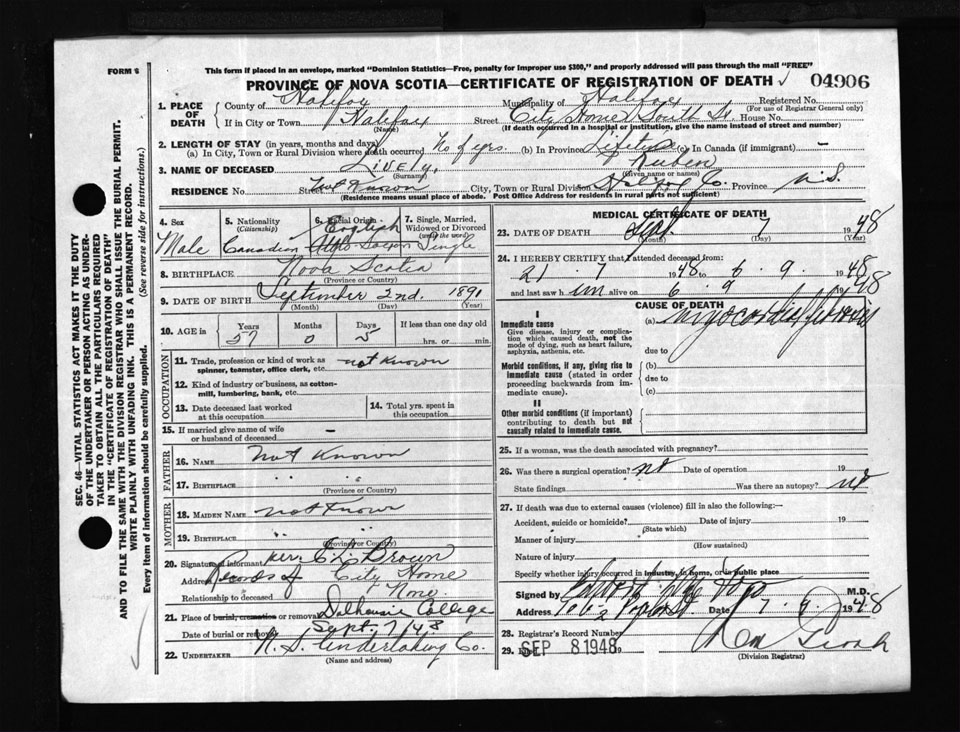 FORM 6
This form if placed in an envelope, marked "Dominion Statistics—Free, penalty for improper use $300," and properly addressed will pass through the mail "FREE"
PROVINCE OF NOVA SCOTIA—CERTIFICATE OF REGISTRATION OF DEATH ✓ 04906
1. PLACE OF DEATH County of Halifax Municipality of Halifax Registered No.
(For use of Registrar General only)
If in City or Town Halifax Street City Home South St. House No.
(Name) (If death occurred in a hospital or institution, give the name instead of street and number)
2. LENGTH OF STAY (in years, months and days)
(a) In City, Town or Rural Division where death occurred No of yrs. (b) In Province Lifetime (c) In Canada (if immigrant) —
3. NAME OF DECEASED Lively, Ruben
(Surname) (Given name or names)
RESIDENCE No. Street Not Known City, Town or Rural Division Halifax Co. Province N.S.
(Residence means usual place of abode. Post Office Address for residents in rural parts not sufficient)
4. Sex Male
5. Nationality (Citizenship) Canadian
6. Racial Origin English
7. Single, Married, Widowed or Divorced (write the word) Single
8. BIRTHPLACE Nova Scotia
(Province or Country)
9. DATE OF BIRTH September 2nd. 1891
(Month) (Day) (Year)
10. AGE in Years Months Days If less than one day old
57 0 5 hrs. or min.
OCCUPATION
11. Trade, profession or kind of work as spinner, teamster, office clerk, etc. not known
12. Kind of industry or business, as cotton-mill, lumbering, bank, etc.
13. Date deceased last worked at this occupation
14. Total yrs. spent in this occupation
15. If married give name of wife or husband of deceased —
FATHER
16. NAME Not Known
17. BIRTHPLACE " "
(Province or Country)
MOTHER
18. MAIDEN NAME not Known
19. BIRTHPLACE " "
(Province or Country)
20. Signature of informant per. Brown
Address Records of City Home
Relationship to deceased None
21. Place of burial, cremation or removal Dalhousie College
Date of burial or removal Sept. 7/48
22. UNDERTAKER N. S. Undertaking Co.
(Name and address)
MEDICAL CERTIFICATE OF DEATH
23. DATE OF DEATH Sept. 7 1948
(Month) (Day) (Year)
24. I HEREBY CERTIFY that I attended deceased from:
21 . 7 1948 to 6 . 9 . 1948
and last saw h im alive on 6 9 1948
CAUSE OF DEATH
I
Immediate cause
Give disease, injury or complication which caused death, not the mode of dying, such as heart failure, asphyxia, asthenia, etc.
(a) Myocardial fibrosis
due to
Morbid conditions, if any, giving rise to immediate cause (stated in order proceeding backwards from immediate cause)
(b)
due to
(c)
II
Other morbid conditions (if important) contributing to death but not causally related to immediate cause.
25. If a woman, was the death associated with pregnancy?
26. Was there a surgical operation? no Date of operation 19
State findings Was there an autopsy? no
27. If death was due to external causes (violence) fill in also the following:—
Accident, suicide or homicide? Date of injury 19
(State which)
Manner of injury
(How sustained)
Nature of injury
Specify whether injury occurred in industry, in home, or in public place
Signed by M.D.
Address Date 7 . 9 . 1948
28. Registrar's Record Number
29. SEP 8 1948
(Division Registrar)
SEC. 46—VITAL STATISTICS ACT MAKES IT THE DUTY OF THE UNDERTAKER OR PERSON ACTING AS UNDERTAKER TO OBTAIN ALL THE PARTICULARS REQUIRED IN THE "CERTIFICATE OF REGISTRATION OF DEATH" AND TO FILE THE SAME WITH THE DIVISION REGISTRAR WHO SHALL ISSUE THE BURIAL PERMIT.
WRITE PLAINLY WITH UNFADING INK. THIS IS A PERMANENT RECORD.
Every item of information should be carefully supplied. (See reverse side for instructions.)